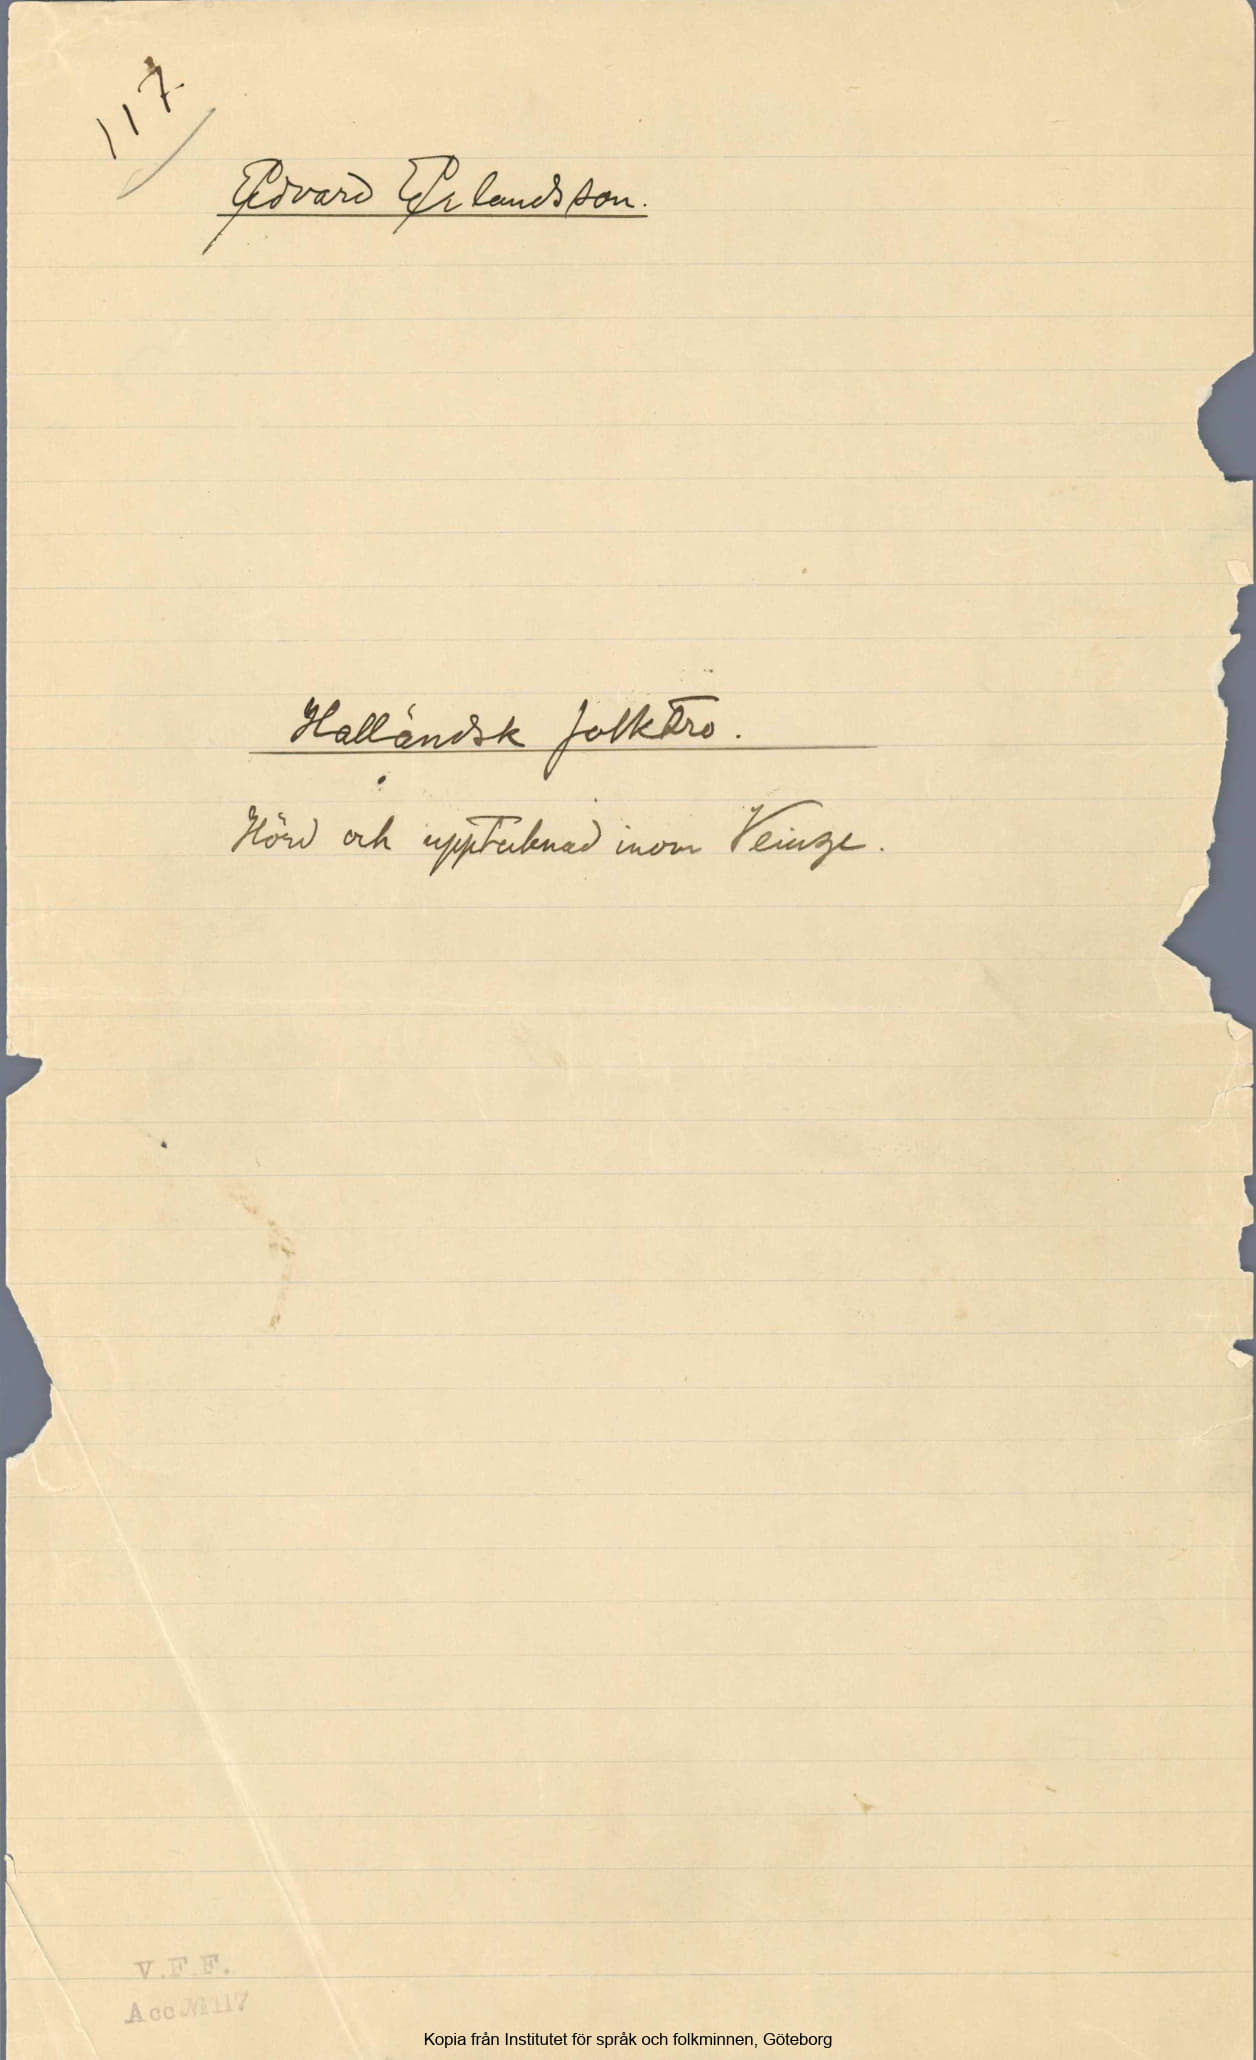 117
Edvard Erlandsson.
Halländsk folktro.
Hörd och upptecknad inom Veinge.
V.F.F.
Acc. № 117
Kopia från Institutet för språk och folkminnen, Göteborg